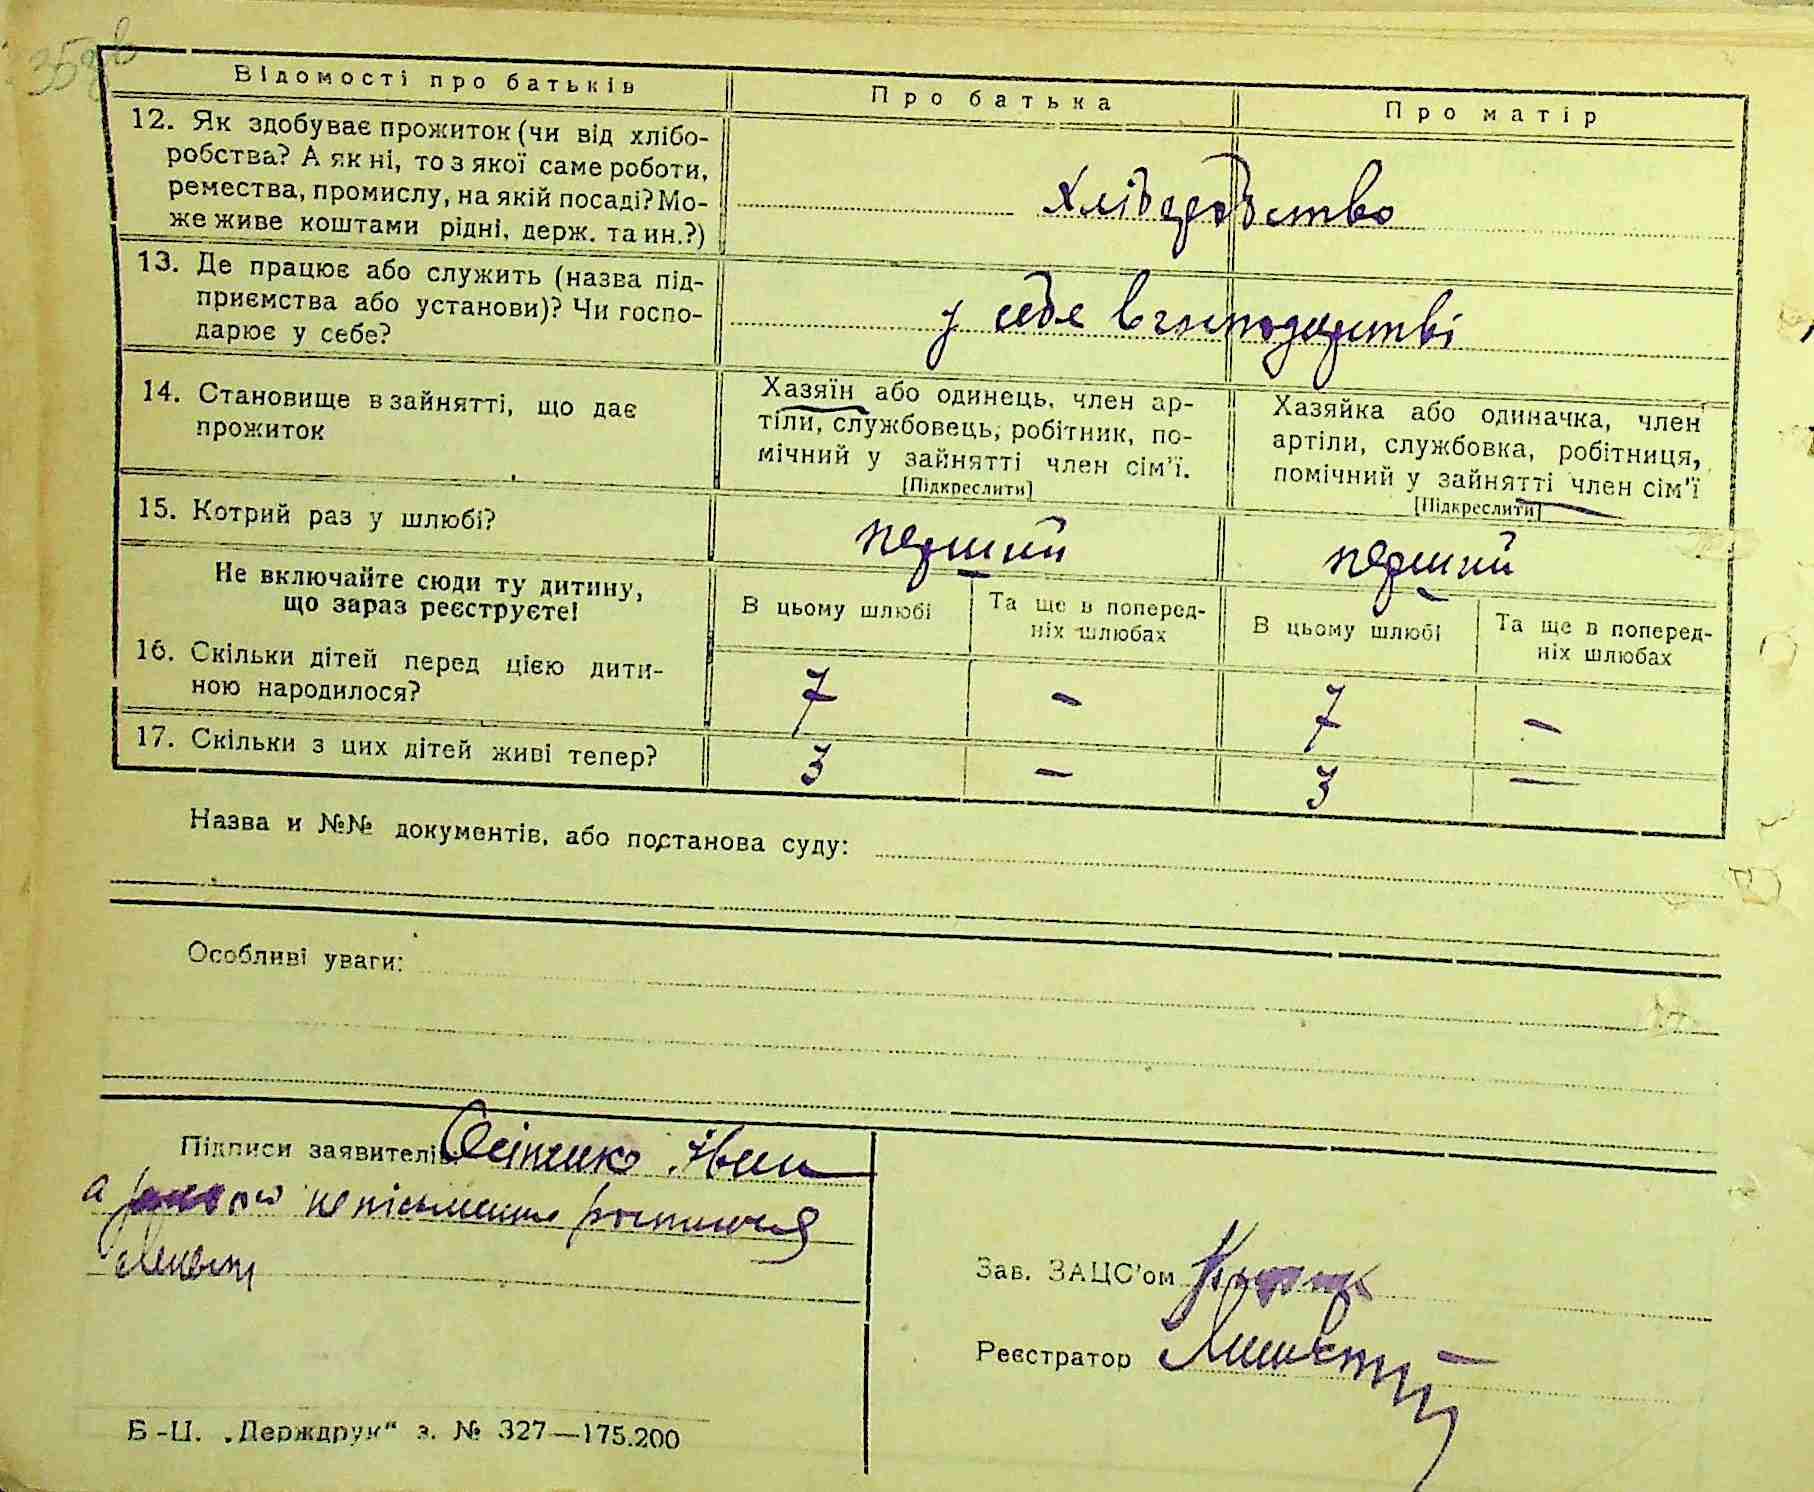 358 в
Відомості про батьків
Про батька
Про матір
12. Як здобуває прожиток (чи від хлібо-
робства? А як ні, то з якої саме роботи,
ремества, промислу, на якій посаді? Мо-
же живе коштами рідні, держ. та ин.?)
хліборобство
13. Де працює або служить (назва під-
приємства або установи)? Чи госпо-
дарює у себе?
у себе в господарстві
14. Становище в зайнятті, що дає
прожиток
Хазяїн або одинець, член ар-
тіли, службовець, робітник, по-
мічний у зайнятті член сім'ї.
[Підкреслити]
Хазяйка або одиначка, член
артіли, службовка, робітниця,
помічний у зайнятті член сім'ї
[Підкреслити]
15. Котрий раз у шлюбі?
перший
перший
Не включайте сюди ту дитину,
що зараз реєструєте!
В цьому шлюбі
Та ще в поперед-
ніх шлюбах
В цьому шлюбі
Та ще в поперед-
ніх шлюбах
16. Скільки дітей перед цією дити-
ною народилося?
7 - 7 -
17. Скільки з цих дітей живі тепер?
3 - 3 -
Назва и №№ документів, або постанова суду:
Особливі уваги:
Підписи заявителів: Осіпенко Іван
а неписьменного росписався
Зав. ЗАЦС'ом
Реєстратор
Б-Ц. „Держдрук“ з. № 327—175.200